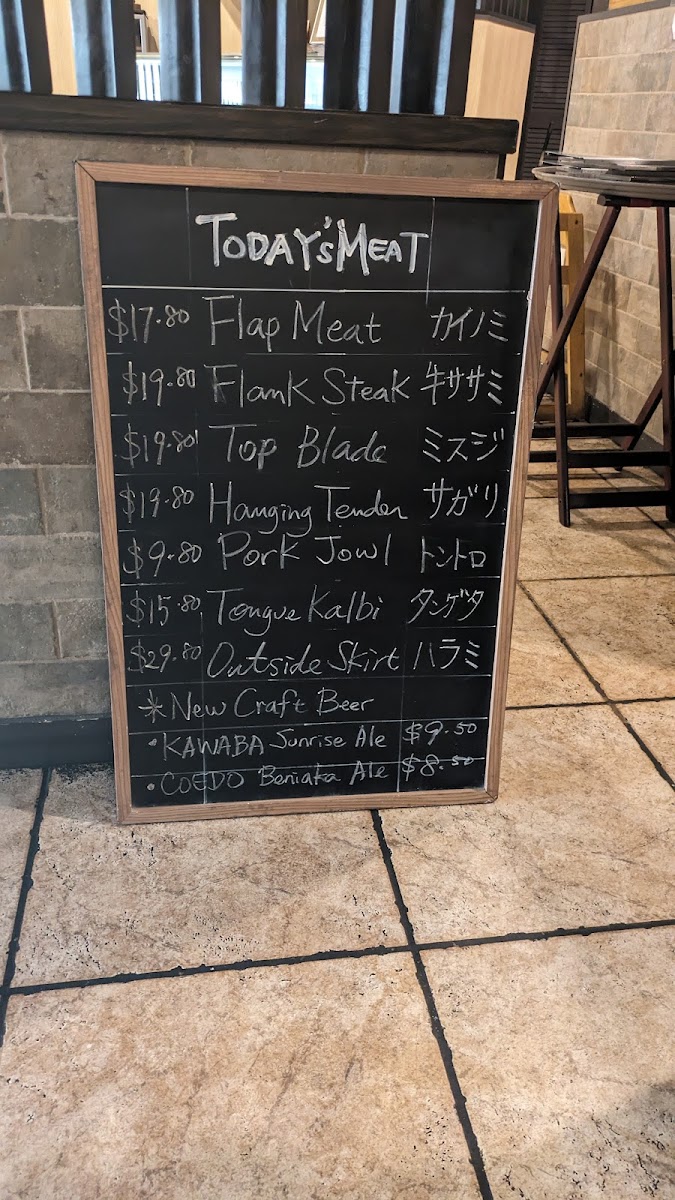 TODAY'S MEAT
$17.80 Flap Meat カイノミ
$19.80 Flank Steak 牛ササミ
$19.80 Top Blade ミスジ
$19.80 Hanging Tender サガリ
$9.80 Pork Jowl トントロ
$15.80 Tongue Kalbi タンゲタ
$29.80 Outside Skirt ハラミ
*New Craft Beer
• KAWABA Sunrise Ale $9.50
• COEDO Beniaka Ale $8.50